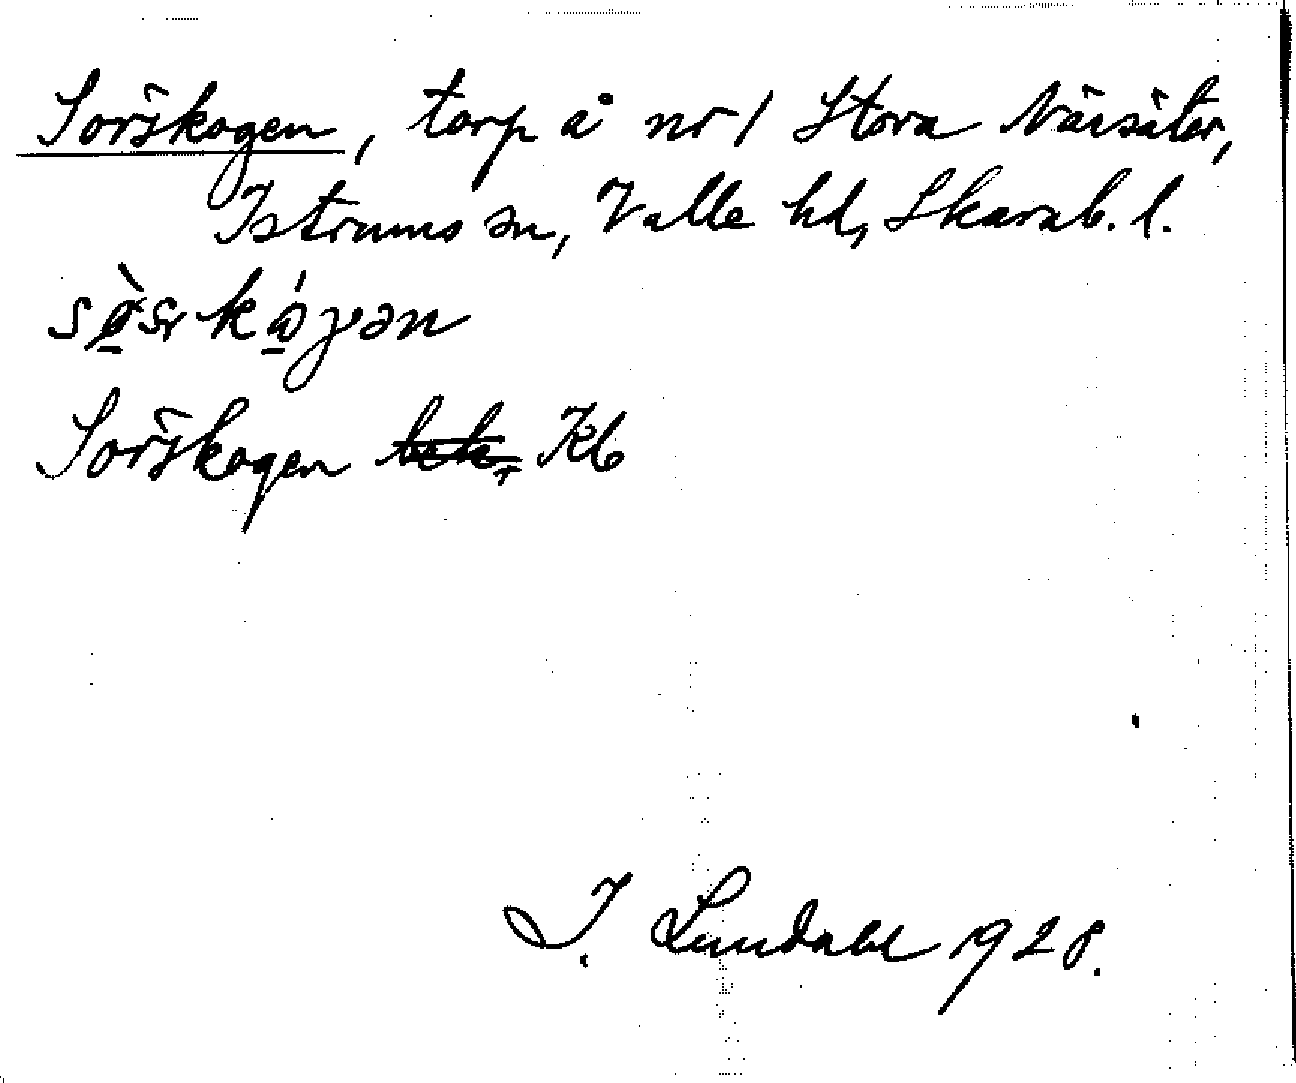 Sörskogen, torp å nr 1 Stora Näsäter,
Istrums sn, Valle hd, Skarab. l.
Sörskogen Kb
I. Lundahl 1928.